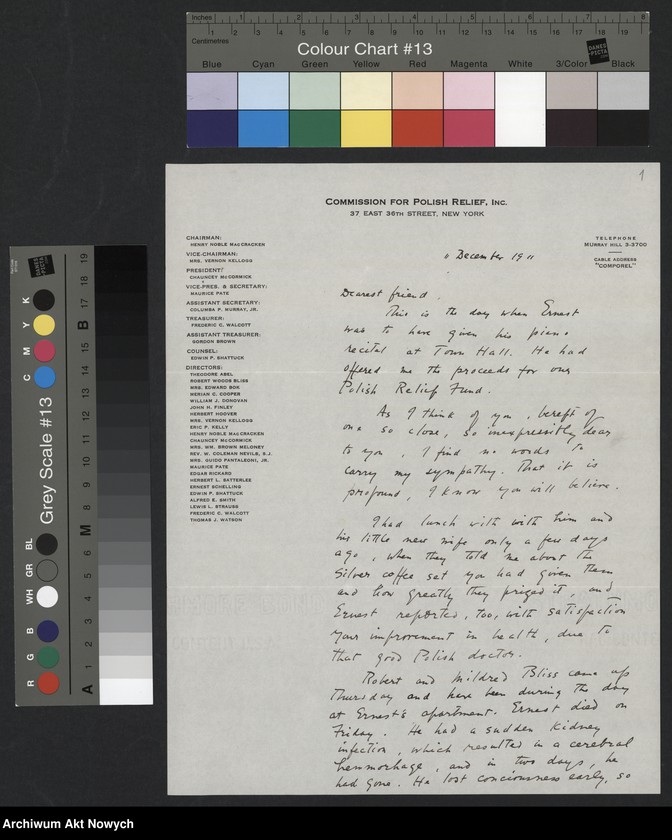 Inches 1 2 3 4 5 6 7 8
Centimetres 1 2 3 4 5 6 7 8 9 10 11 12 13 14 15 16 17 18 19
Colour Chart #13
DANES PICTA
Blue Cyan Green Yellow Red Magenta White 3/Color Black
Grey Scale #13
DANES PICTA
C M Y K
R G B WH GR BL
A 1 2 3 4 5 6 M 8 9 10 11 12 13 14 15 B 17 18 19
1
COMMISSION FOR POLISH RELIEF, INC.
37 EAST 36TH STREET, NEW YORK
TELEPHONE
MURRAY HILL 3-3700
CABLE ADDRESS
"COMPOREL"
CHAIRMAN:
HENRY NOBLE MACCRACKEN
VICE-CHAIRMAN:
MRS. VERNON KELLOGG
PRESIDENT:
CHAUNCEY MCCORMICK
VICE-PRES. & SECRETARY:
MAURICE PATE
ASSISTANT SECRETARY:
COLUMBA P. MURRAY, JR.
TREASURER:
FREDERIC C. WALCOTT
ASSISTANT TREASURER:
GORDON BROWN
COUNSEL:
EDWIN P. SHATTUCK
DIRECTORS:
THEODORE ABEL
ROBERT WOODS BLISS
MRS. EDWARD BOK
MERIAN C. COOPER
WILLIAM J. DONOVAN
JOHN H. FINLEY
HERBERT HOOVER
MRS. VERNON KELLOGG
ERIC P. KELLY
HENRY NOBLE MACCRACKEN
CHAUNCEY MCCORMICK
MRS. WM. BROWN MELONEY
REV. W. COLEMAN NEVILS, S.J.
MRS. GUIDO PANTALEONI, JR.
MAURICE PATE
EDGAR RICKARD
HERBERT L. SATTERLEE
ERNEST SCHELLING
EDWIN P. SHATTUCK
ALFRED E. SMITH
LEWIS L. STRAUSS
FREDERIC C. WALCOTT
THOMAS J. WATSON
December 19
Dearest friend,
This is the day when Ernest
was to have given his piano
recital at Town Hall. He had
offered me the proceeds for our
Polish Relief Fund.
As I think of you, bereft of
one so close, so inexpressibly dear
to you, I find no words to
carry my sympathy. That it is
profound, I know you will believe.
I had lunch with with him and
his little new wife only a few days
ago, when they told me about the
silver coffee set you had given them
and how greatly they prized it, and
Ernest reported, too, with satisfaction
your improvement in health, due to
that good Polish doctor.
Robert and Mildred Bliss came up
Thursday and have been during the day
at Ernest's apartment. Ernest died on
Friday. He had a sudden kidney
infection, which resulted in a cerebral
hemmorhage, and in two days, he
had gone. He lost conciousness early, so
Archiwum Akt Nowych